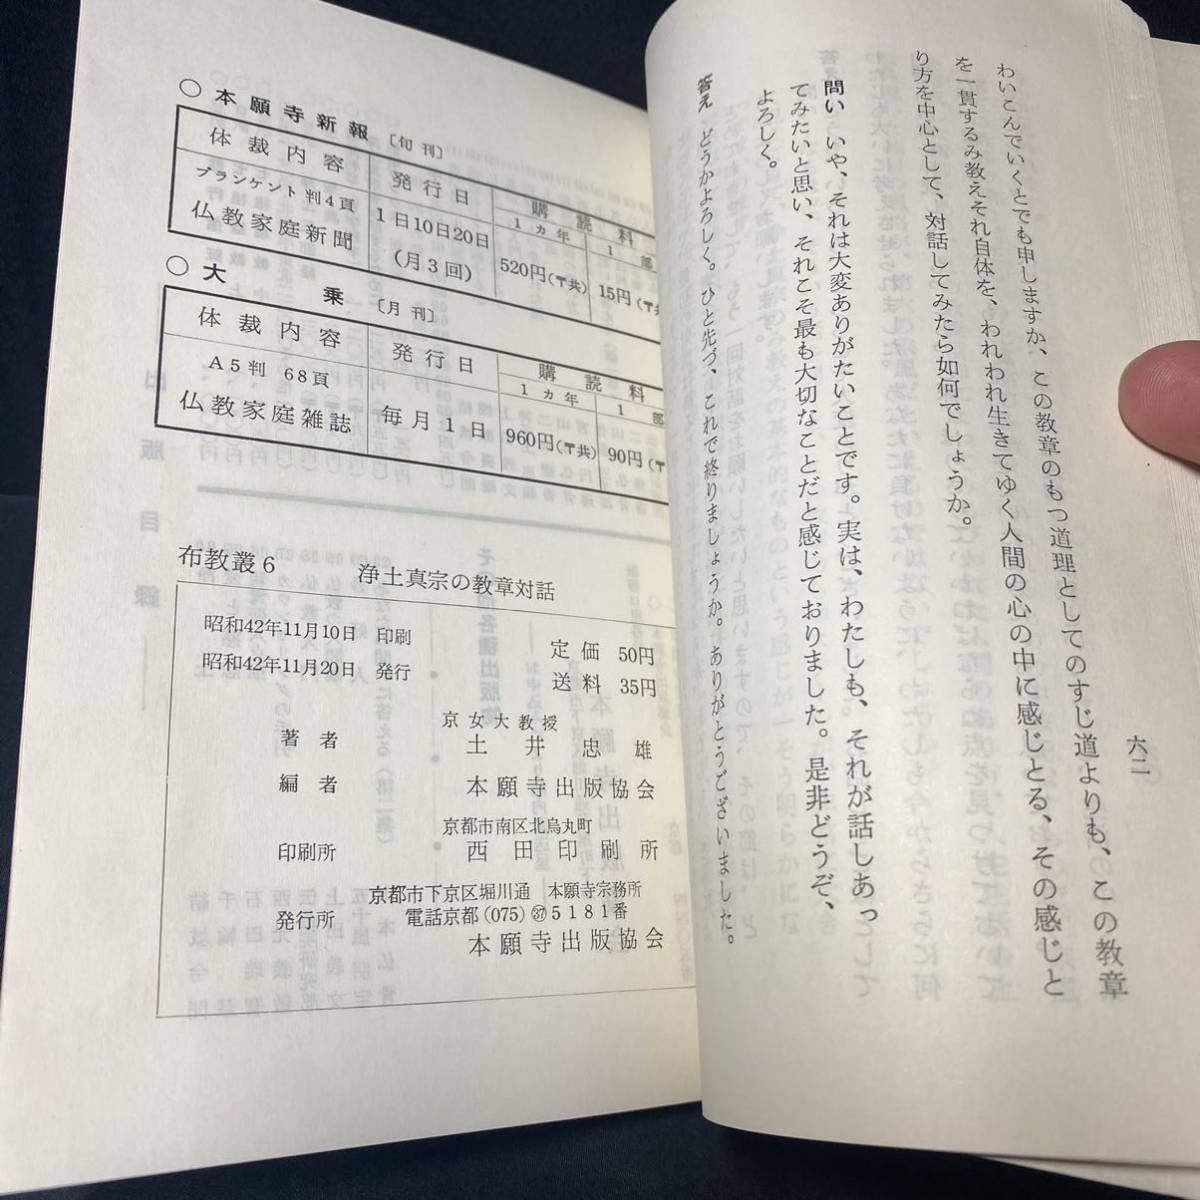 わいこんでいくとでも申しますか、この教章のもつ道理としてのすじ道よりも、この教章
を一貫するみ教えそれ自体を、われわれ生きてゆく人間の心の中に感じとる、その感じと
り方を中心として、対話してみたら如何でしょうか。
問い いや、それは大変ありがたいことです。実は、わたしも、それが話しあっ
てみたいと思い、それこそ最も大切なことだと感じておりました。是非どうぞ、
よろしく。
答え どうかよろしく。ひと先づ、これで終りましょうか。ありがとうございました。
六二
○本願寺新報〔旬刊〕
体裁内容 発行日 購読料
1ヵ年 1部
ブランケント判4頁
仏教家庭新聞
1日10日20日
(月3回)
520円(〒共) 15円(〒共
○大乗〔月刊〕
体裁内容 発行日 購読料
1ヵ年 1部
A5判 68頁
仏教家庭雑誌
毎月1日
960円(〒共) 90円(〒共
布教叢6 浄土真宗の教章対話
昭和42年11月10日 印刷
昭和42年11月20日 発行
定価 50円
送料 35円
京女大教授
著者 土井忠雄
編者 本願寺出版協会
京都市南区北烏丸町
印刷所 西田印刷所
京都市下京区堀川通 本願寺宗務所
発行所 電話京都(075)㊲5181番
本願寺出版協会